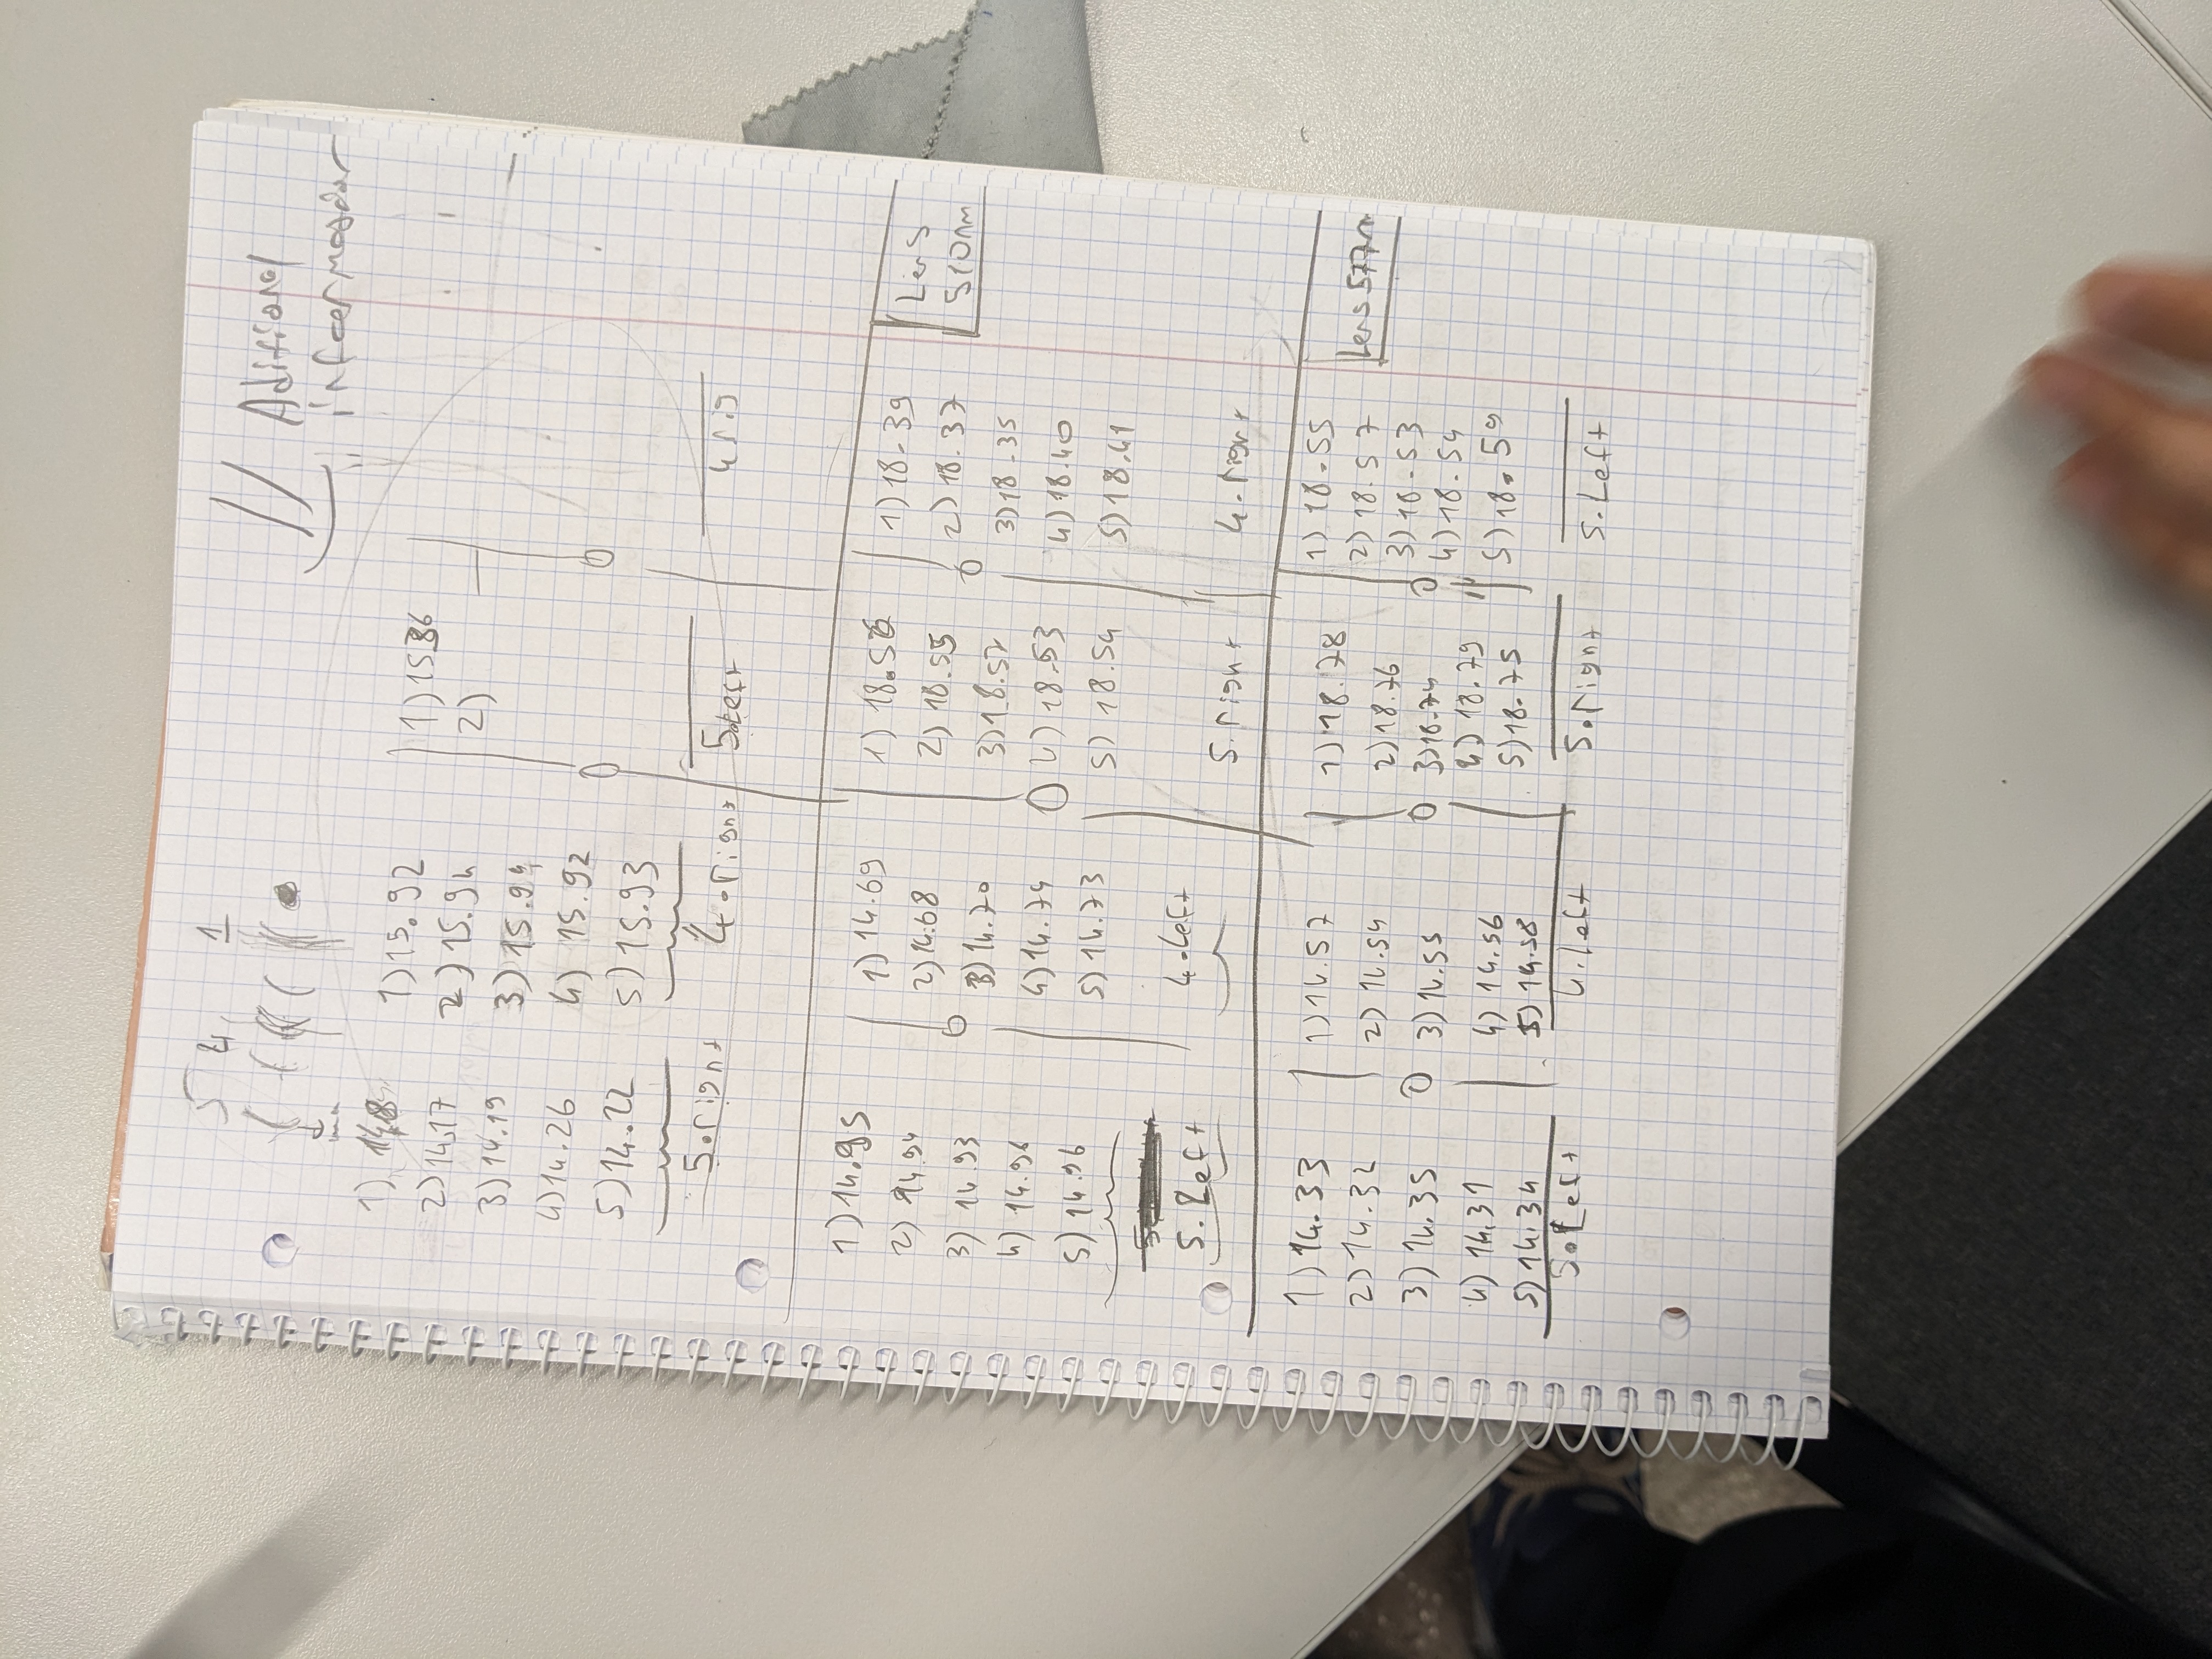 5 4 1
Aditional
1) 14.18
2) 14.17
3) 14.19
4) 14.26
5) 14.22
5. right
1) 15.92
2) 15.94
3) 15.94
4) 15.92
5) 15.93
4. right
1) 15.86
2)
5. Left
4 rig
Lens
510nm
1) 14.95
2) 14.94
3) 14.93
4) 14.96
5) 14.96
5. Left
1) 14.69
2) 14.68
3) 14.70
4) 14.74
5) 14.73
4. Left
1) 18.56
2) 18.55
3) 18.57
4) 18.53
5) 18.54
5. right
1) 18.39
2) 18.37
3) 18.35
4) 18.40
5) 18.41
4. right
Lens 577n
1) 14.33
2) 14.32
3) 14.35
4) 14.31
5) 14.34
5. Left
1) 14.57
2) 14.54
3) 14.55
4) 14.56
5) 14.58
4. Left
1) 18.78
2) 18.76
3) 18.74
4) 18.79
5) 18.75
5. right
1) 18.55
2) 18.57
3) 18.53
4) 18.54
5) 18.59
5. Left